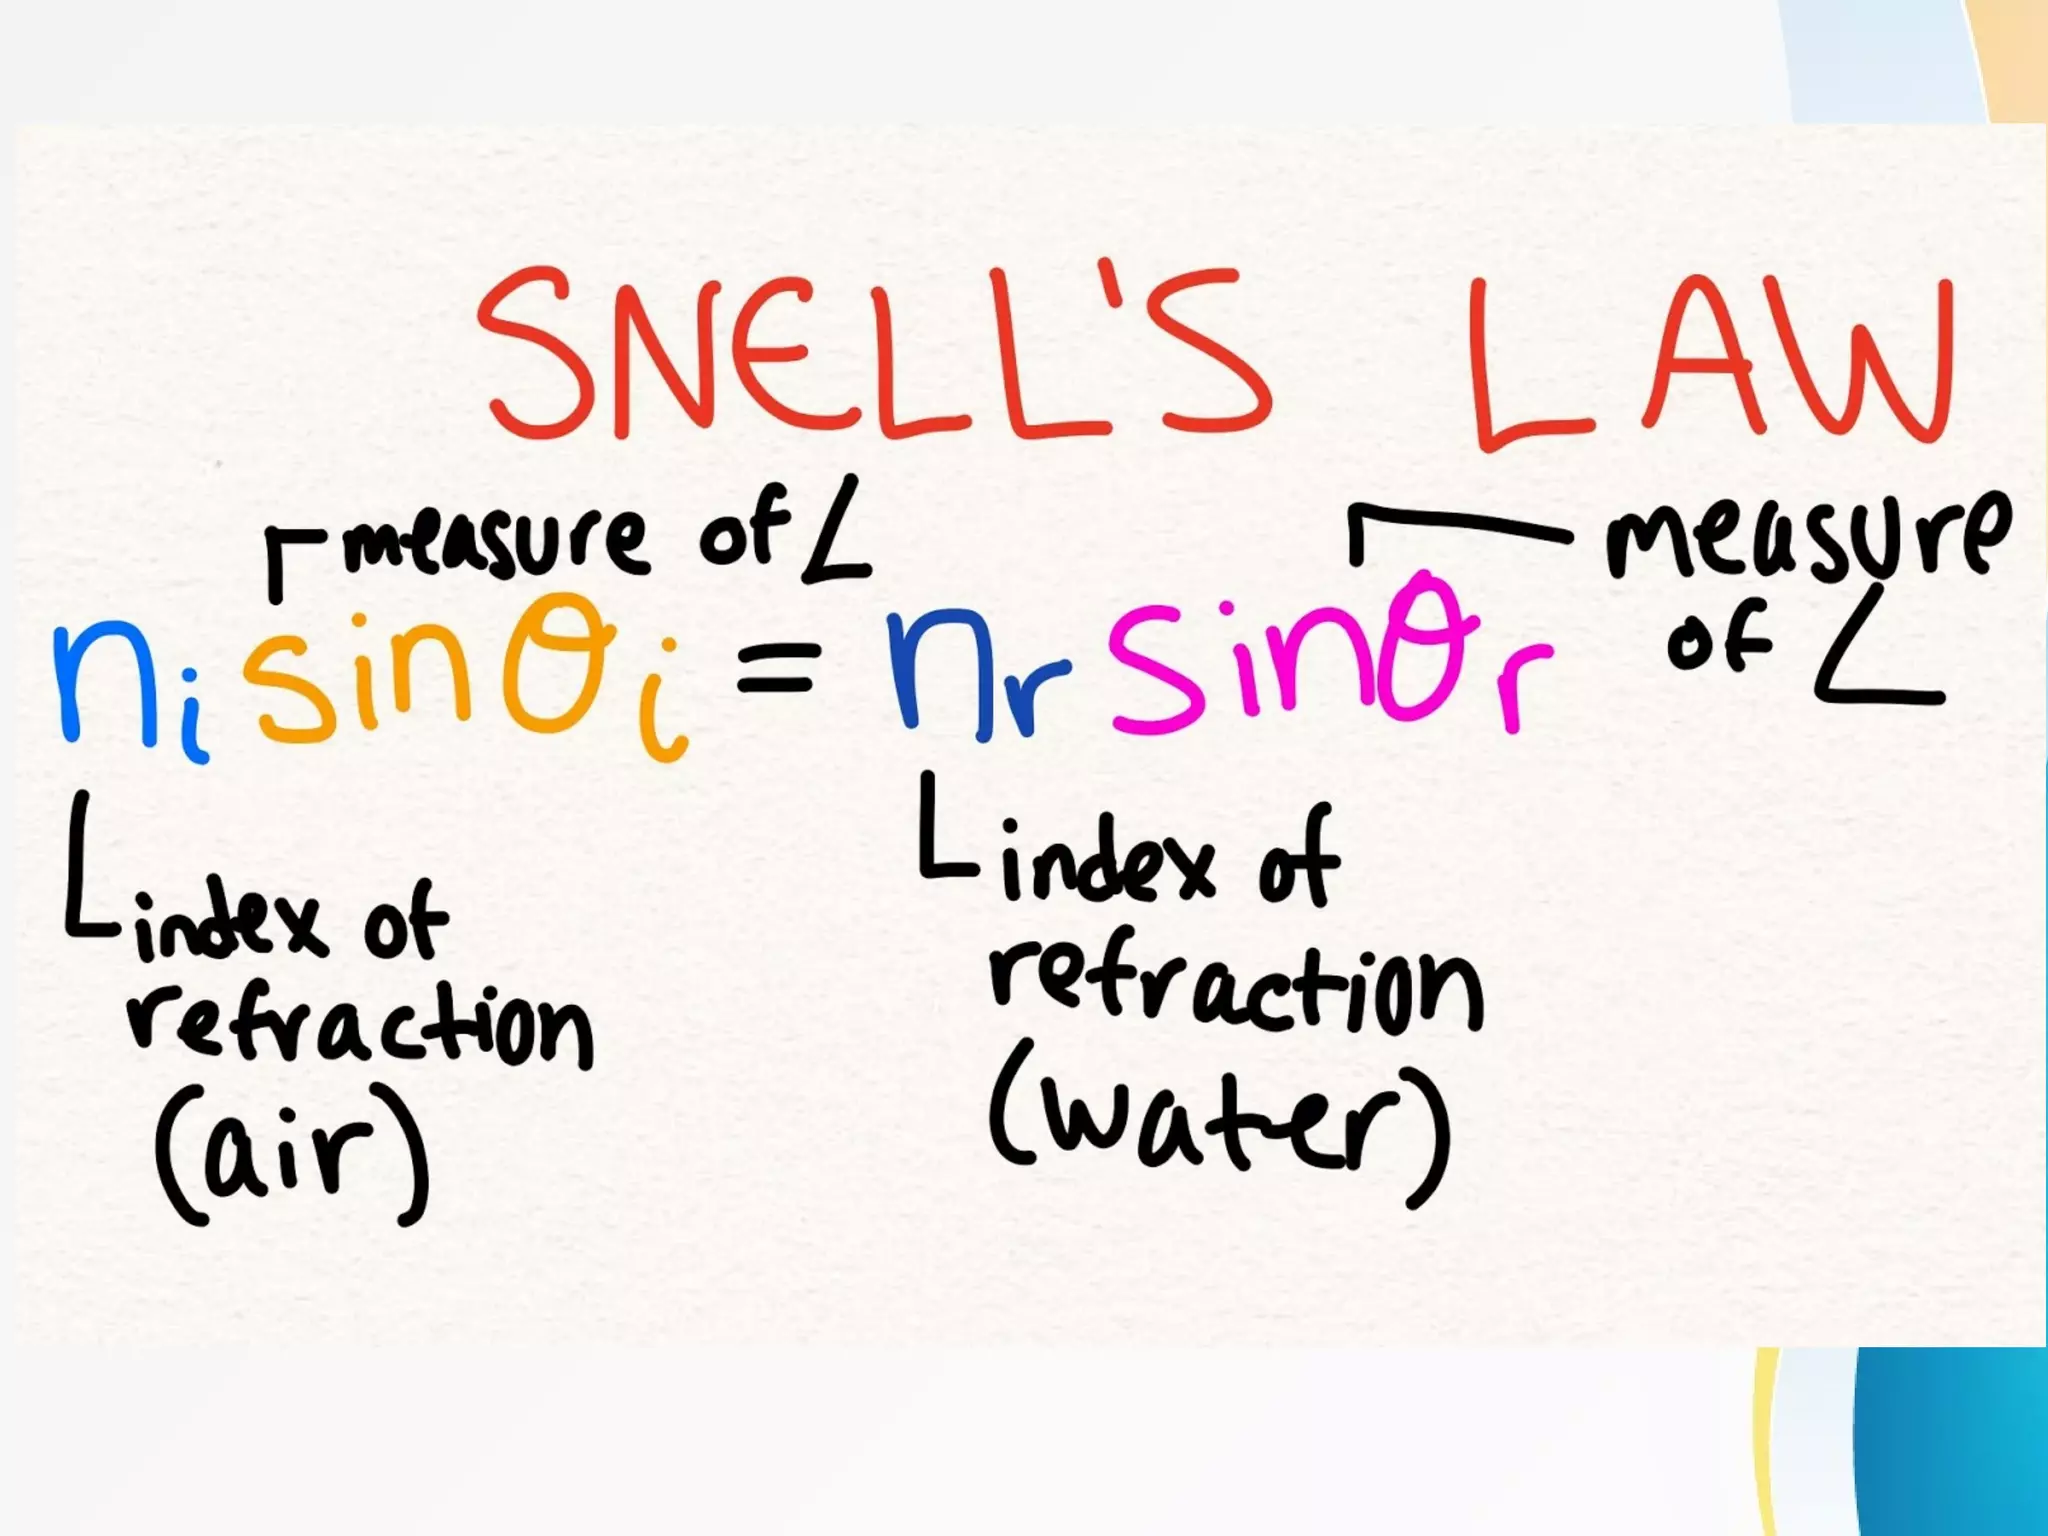 SNELL'S LAW
measure of ∠
measure
of ∠
nᵢ sinθᵢ = nᵣ sinθᵣ
index of
refraction
(air)
index of
refraction
(water)